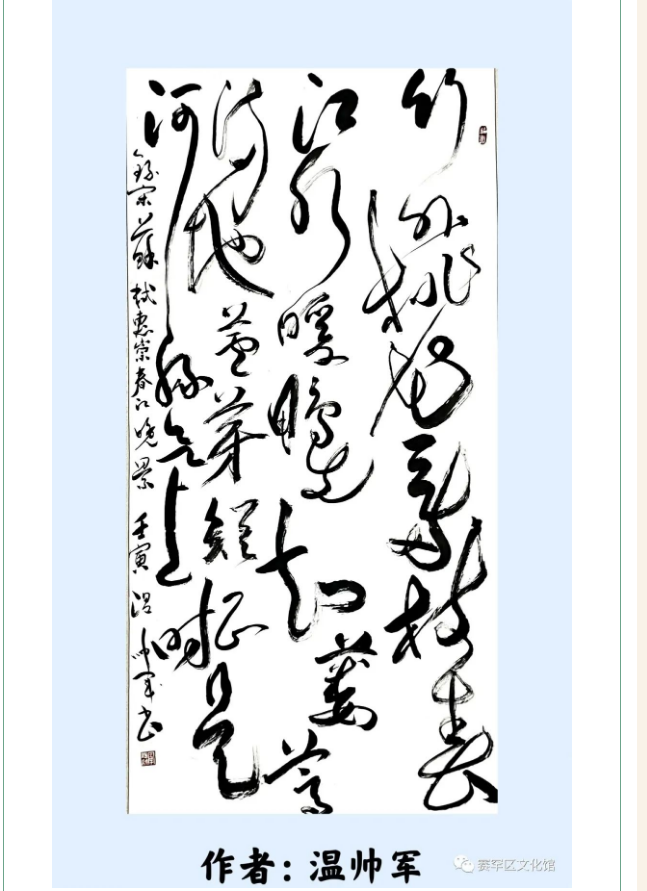 竹外桃花三兩枝春
江水暖鴨先知蔞蒿
滿地蘆芽短正是
河豚欲上時
錄宋蘇軾惠崇春江晚景 壬寅 温帅军书
作者：温帅军
赛罕区文化馆